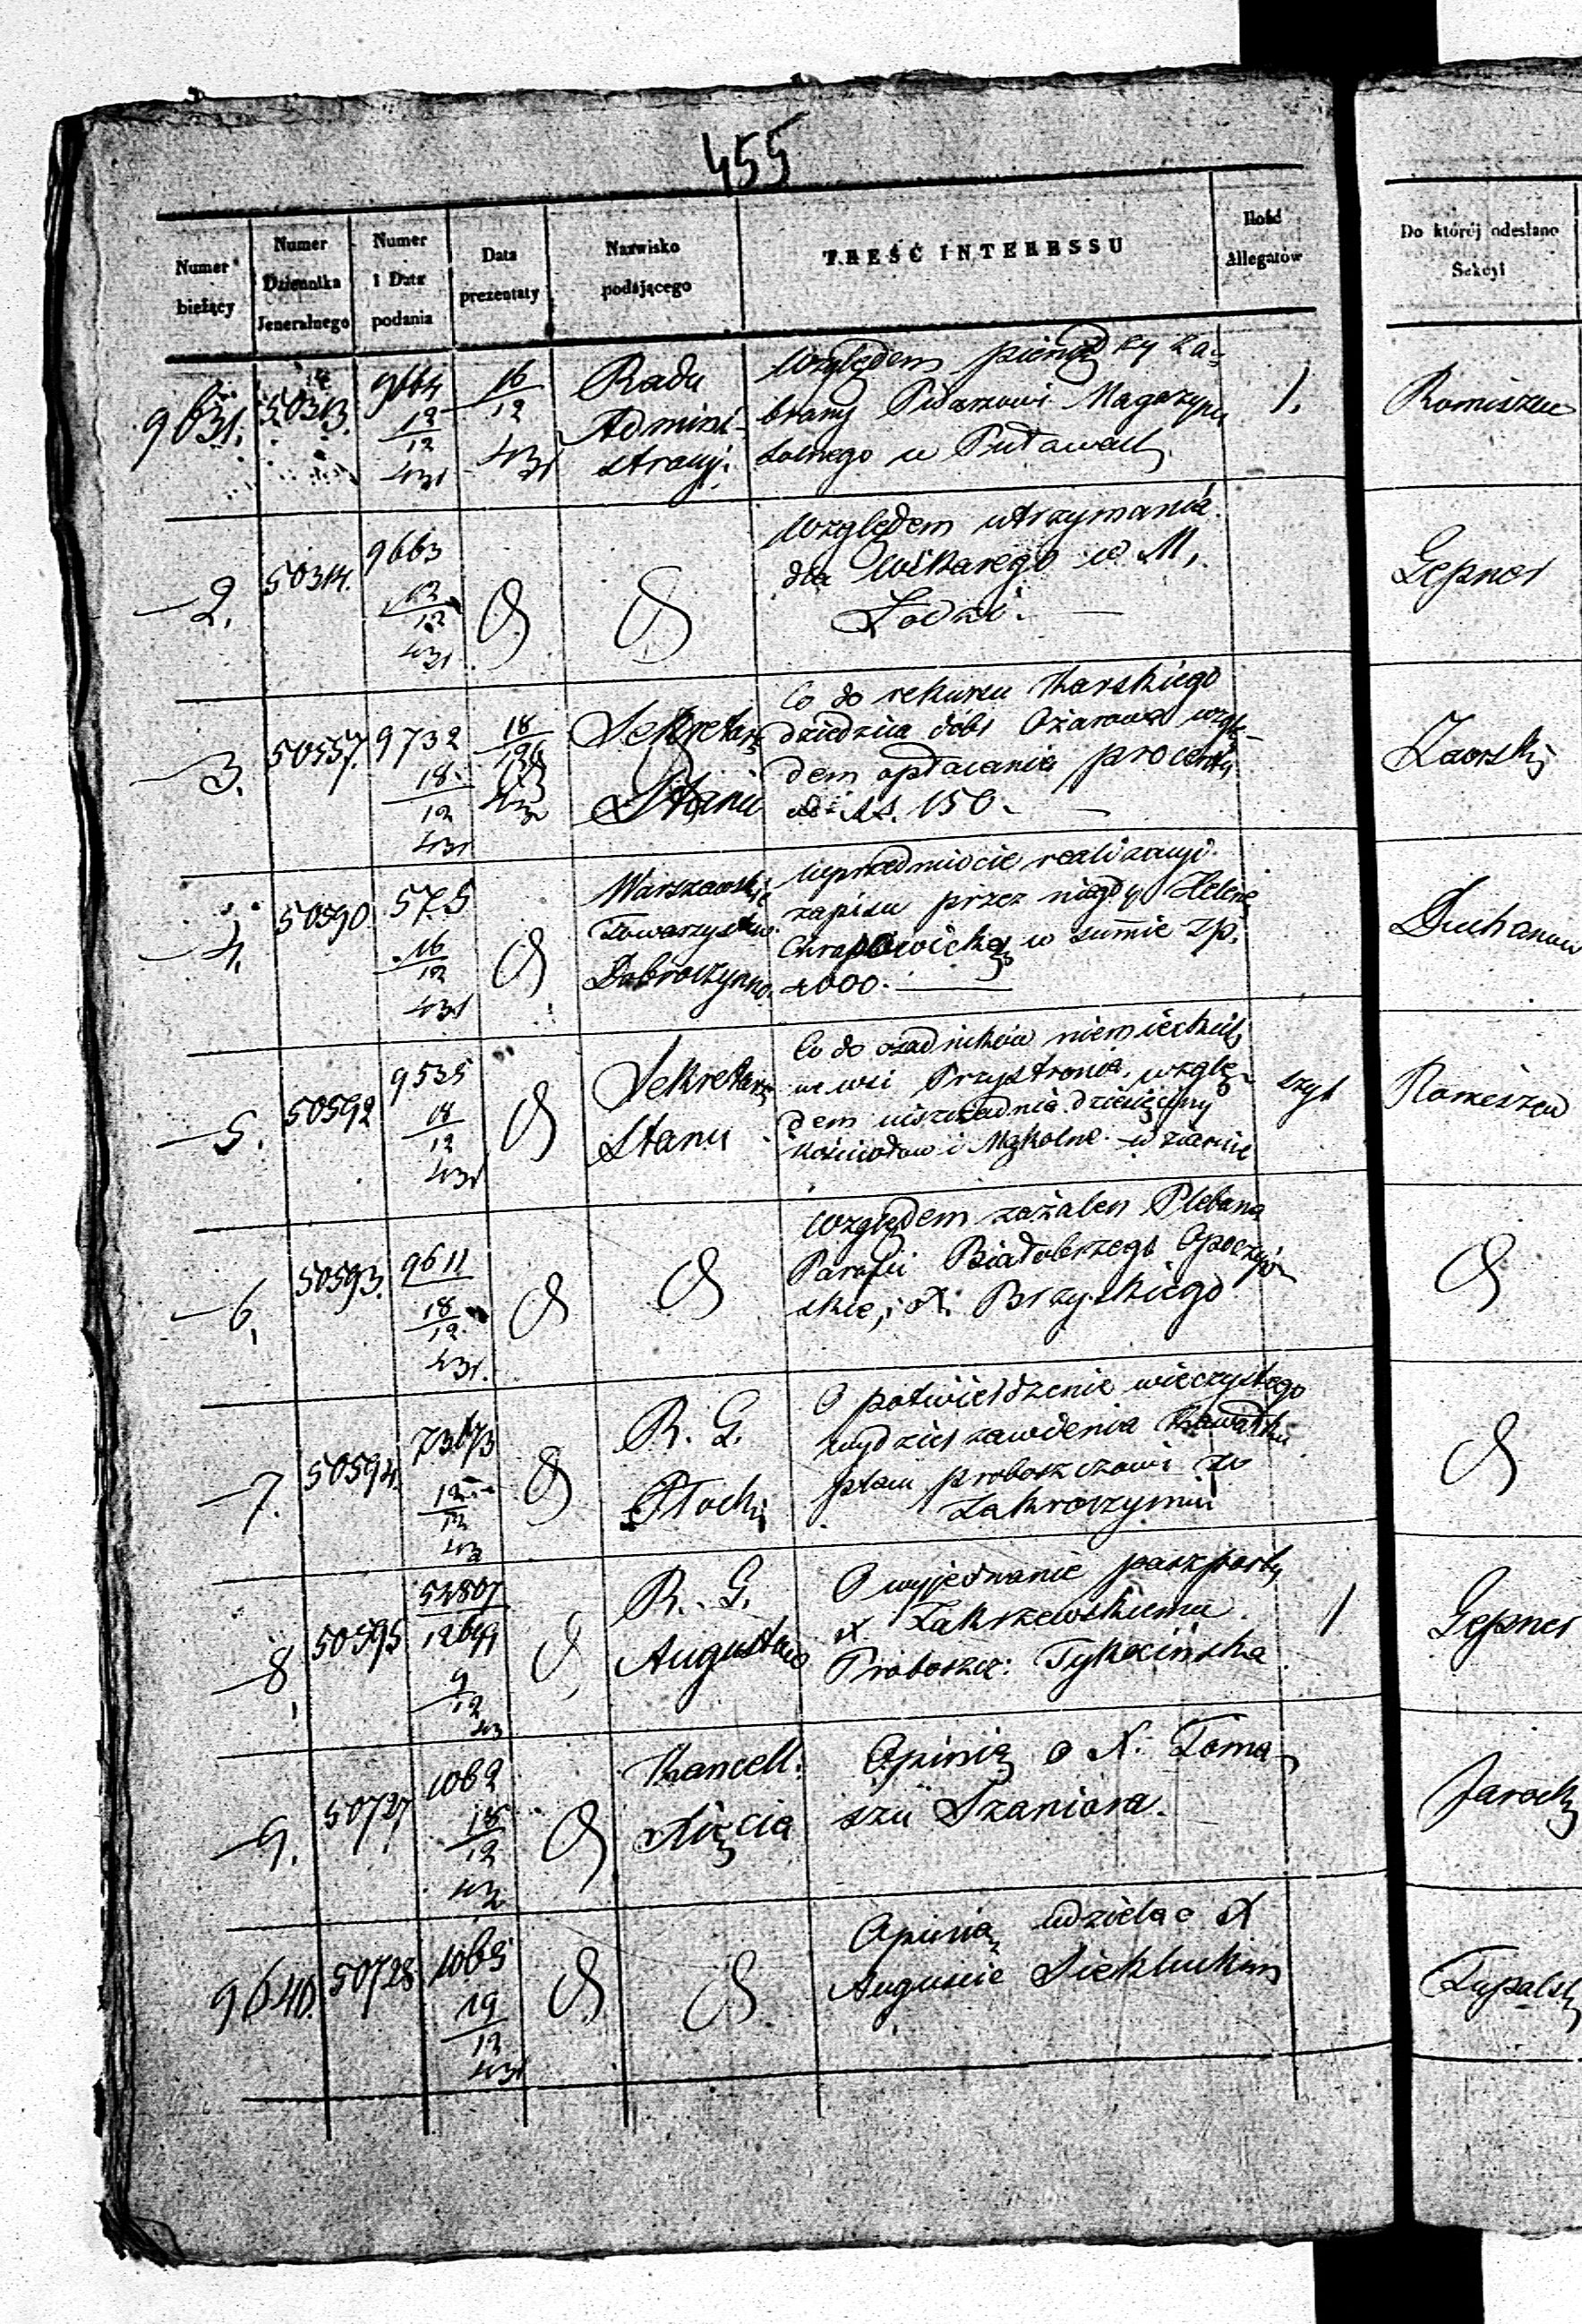 455
Numer bieżący
Numer Dziennika Jeneralnego
Numer i Data podania
Data prezentaty
Nazwisko podającego
TREŚĆ INTERESSU
Ilość Allegatów
Do której odesłano Sekcyi
9631. 50313. 9664 12/12 431 16/12 431
Rada
Admini-
stracyj.
Względem pieniędzy za-
brany Pisarzowi Magazynu
solnego w Puławach
1.
Romiszew
—2. 50314. 9663 12/12 431
Względem utrzymania
dla Wikarego w M.
Łodzi. —
Gepner
—3. 50557. 9732 18/12 431 18/12
Sekretarz
Stanu
Co do rekursu Karskiego
dziedzica dóbr Ożarowa wzglę-
dem opłacania procentu
od rs. 150. —
Zaorski
—4. 50590. 575 16/12 431
Warszawskie
Towarzystwo
Dobroczynno.
W przedmiocie realizacyi
zapisu przez niegdy Helenę
w summie Zp.
2000. —
—5. 50592 9535 18/12 431
Sekretarz
Stanu
Co do osadników niemieckich
we wsi Przystronia, wzglę-
dem uiszczadnia dziesięciny
Kościołow i Mąkolne w ziarnie
szyt
Romiszew
—6. 50593. 9611 18/12 431.
Względem zażaleń Plebana
Parafii Białobrzegi Opoczyń-
skie, X. Brzyskiego
—7. 50594. 73673 12/12 43
R. G.
Płocki
O potwierdzenie wieczystego
wydzierzawienia Kawałku
placu proboszczowi w
Zakroczymiu
—8. 50595 52807 12649 9/12 43
R. G.
Augustow
O wyjednanie paszportu
X Zakrzewskiemu
Proboszcz: Tykocińska
1
Gepner
—9. 50727 1062 18/12 43
Kancell:
Xięcia
Opinią o X. Toma-
szu Szaniora.
Jarocki
9640. 50728 1065 19/12 431
Opinią udziela o X
Auguście Siekluckim